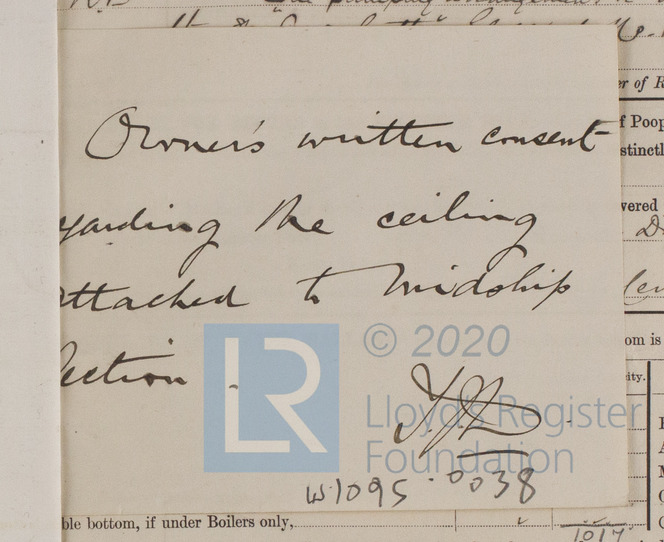 er of R
Owner's written consent
f Poop
stinctl
garding the ceiling
vered
attached to Midship
Section.
om is
© 2020
LR
ity.
Lloyd's Register
Foundation
W1095-0038
ble bottom, if under Boilers only,
1017